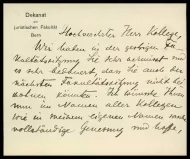 Dekanat
der
juristischen Fakultät
Bern
Hochverehrter Herr Kollege,
Wir haben in der gestrigen Fa-
kultätssitzung Sie sehr vermisst und
es sehr bedauert, dass Sie auch der
nächsten Fakultätssitzung nicht bei-
wohnen könnten. Ich wünsche Ihnen
nun im Namen aller Kollegen
wie in meinem eigenen Namen
vollständige Genesung und hoffe,